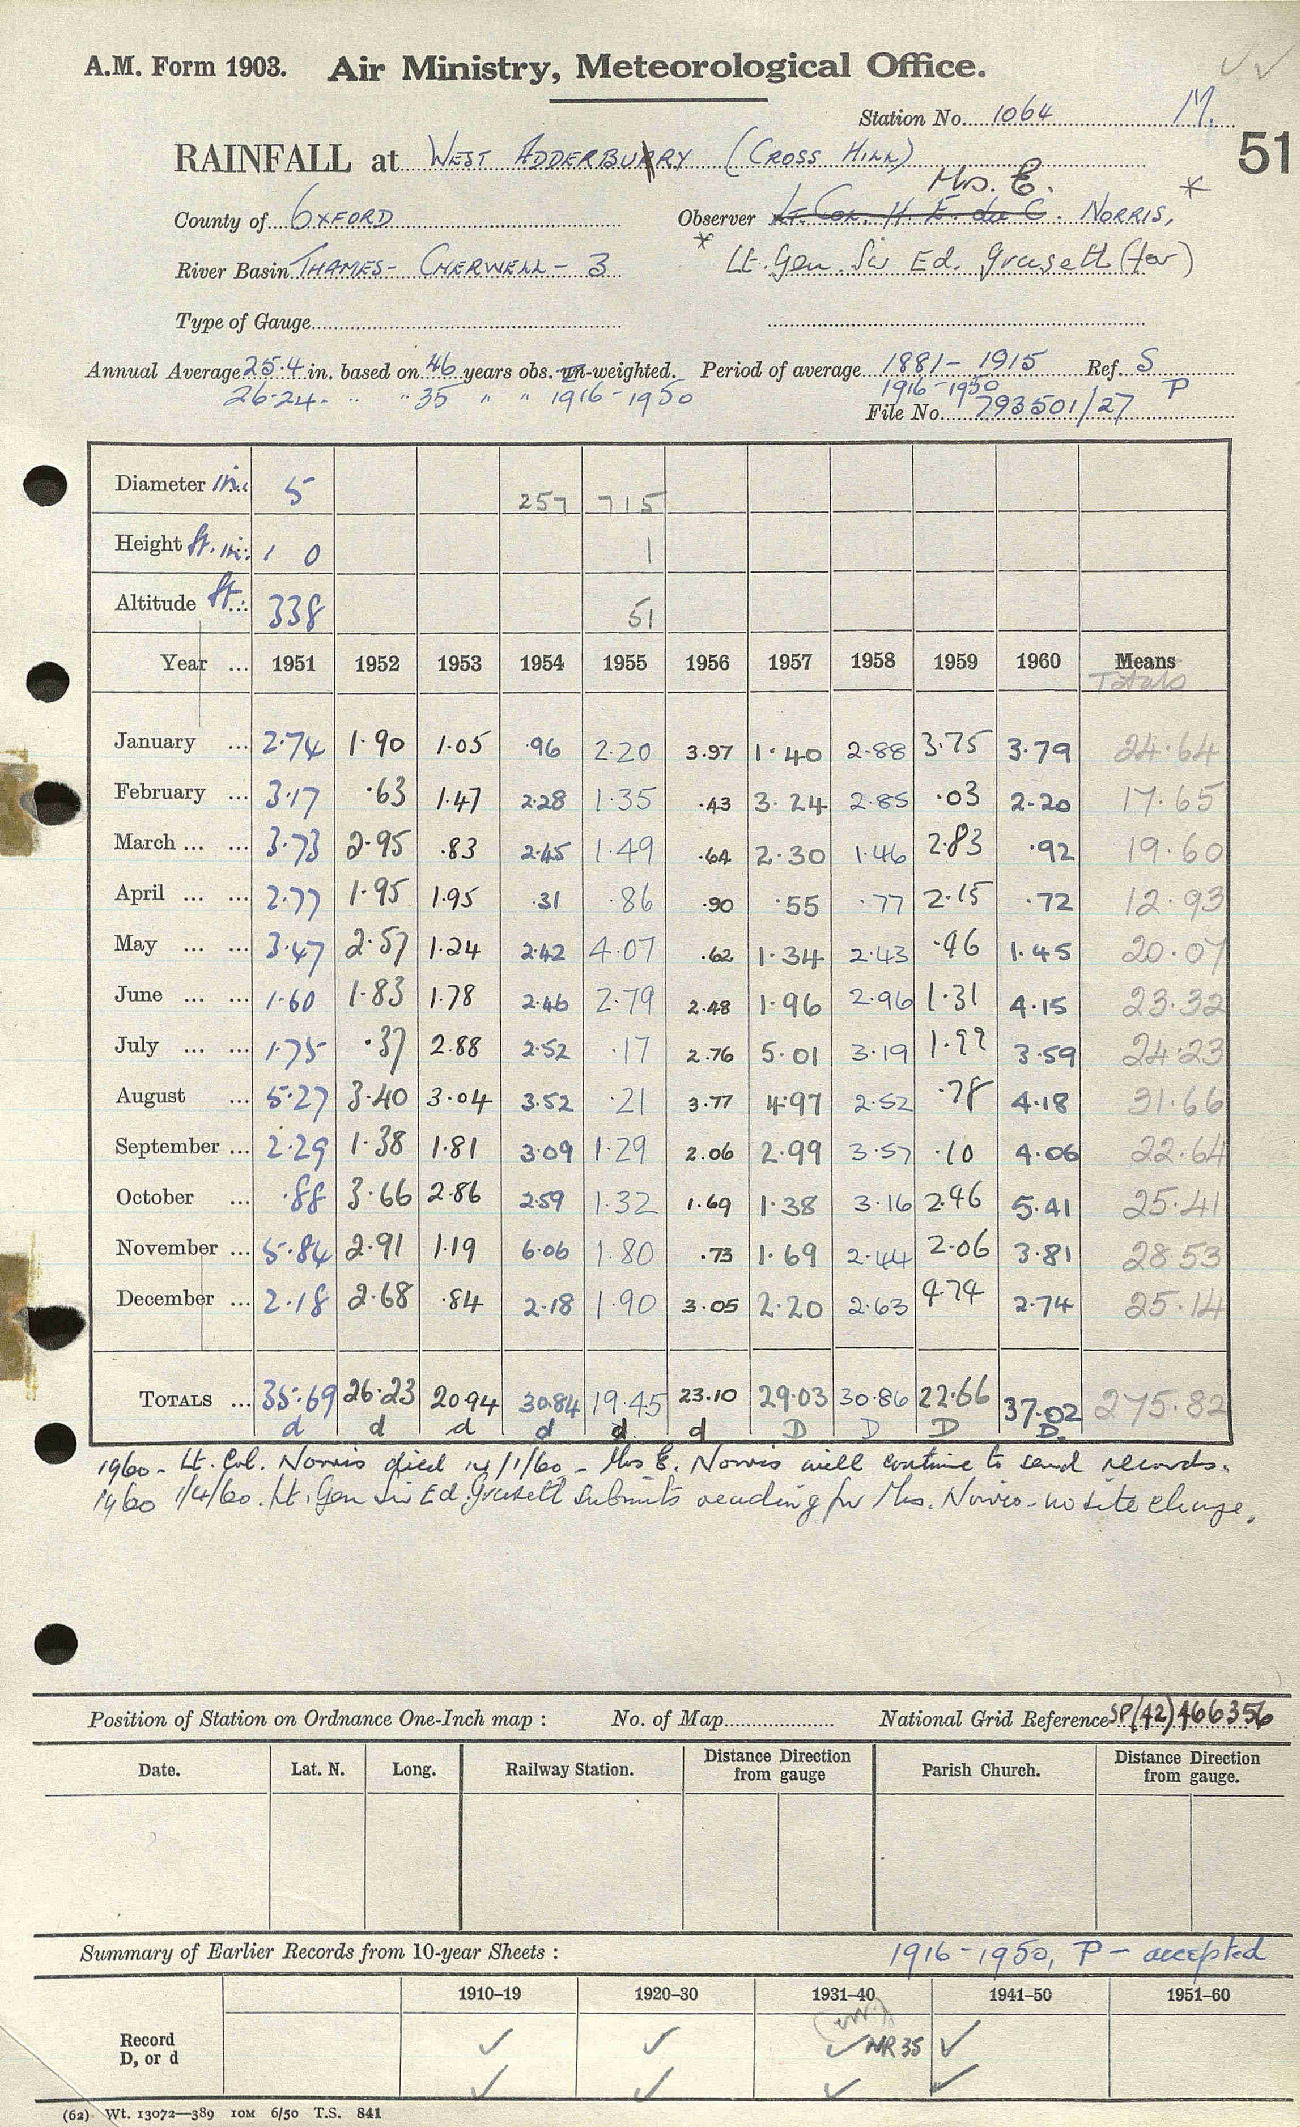 A.M. Form 1903. Air Ministry, Meteorological Office.
Station No. 1064 M.
51
RAINFALL at WEST ADDERBURY (CROSS HILL)
Mrs. E.
County of OXFORD Observer Lt. Col. H. E. du C. NORRIS, *
River Basin THAMES - CHERWELL - 3 * Lt. Gen. Sir Ed. Grasett (for)
Type of Gauge
Annual Average 25.4 in. based on 46 years obs. un-weighted. Period of average 1881 - 1915 Ref. S
26.24 - " " 35 " " 1916 - 1950 1916 - 1950 P
File No. 793501/27
Diameter in. 5 257 715
Height ft. in. 1 0 1
Altitude ft. 338 51
Year ... 1951 1952 1953 1954 1955 1956 1957 1958 1959 1960 Means
Totals
January ... 2.74 1.90 1.05 .96 2.20 3.97 1.40 2.88 3.75 3.79 24.64
February ... 3.17 .63 1.47 2.28 1.35 .43 3.24 2.85 .03 2.20 17.65
March ... ... 3.73 2.95 .83 2.45 1.49 .64 2.30 1.46 2.83 .92 19.60
April ... ... 2.77 1.95 1.95 .31 .86 .90 .55 .77 2.15 .72 12.93
May ... ... 3.47 2.57 1.24 2.42 4.07 .62 1.34 2.43 .96 1.45 20.07
June ... ... 1.60 1.83 1.78 2.46 2.79 2.48 1.96 2.96 1.31 4.15 23.32
July ... ... 1.75 .37 2.88 2.52 .17 2.76 5.01 3.19 1.99 3.59 24.23
August ... 5.27 3.40 3.04 3.52 .21 3.77 4.97 2.52 .78 4.18 31.66
September ... 2.29 1.38 1.81 3.09 1.29 2.06 2.99 3.57 .10 4.06 22.64
October ... .88 3.66 2.86 2.59 1.32 1.69 1.38 3.16 2.46 5.41 25.41
November ... 5.84 2.91 1.19 6.06 1.80 .73 1.69 2.44 2.06 3.81 28.53
December ... 2.18 2.68 .84 2.18 1.90 3.05 2.20 2.63 4.74 2.74 25.14
TOTALS ... 35.69 26.23 20.94 30.84 19.45 23.10 29.03 30.86 22.66 37.02 275.82
d d d d d d D D D D.
1960 - Lt. Col. Norris died 14/1/60 - Mrs E. Norris will continue to send records.
1960 1/4/60. Lt. Gen Sir Ed. Grasett submits reading for Mrs. Norris - no site change.
Position of Station on Ordnance One-Inch map : No. of Map National Grid Reference SP(42)466356
Date. Lat. N. Long. Railway Station. Distance Direction from gauge Parish Church. Distance Direction from gauge.
Summary of Earlier Records from 10-year Sheets : 1916 - 1950, P - accepted
1910–19 1920–30 1931–40 1941–50 1951–60
Record
D, or d
NR 35
(62) Wt. 13072—389 10M 6/50 T.S. 841